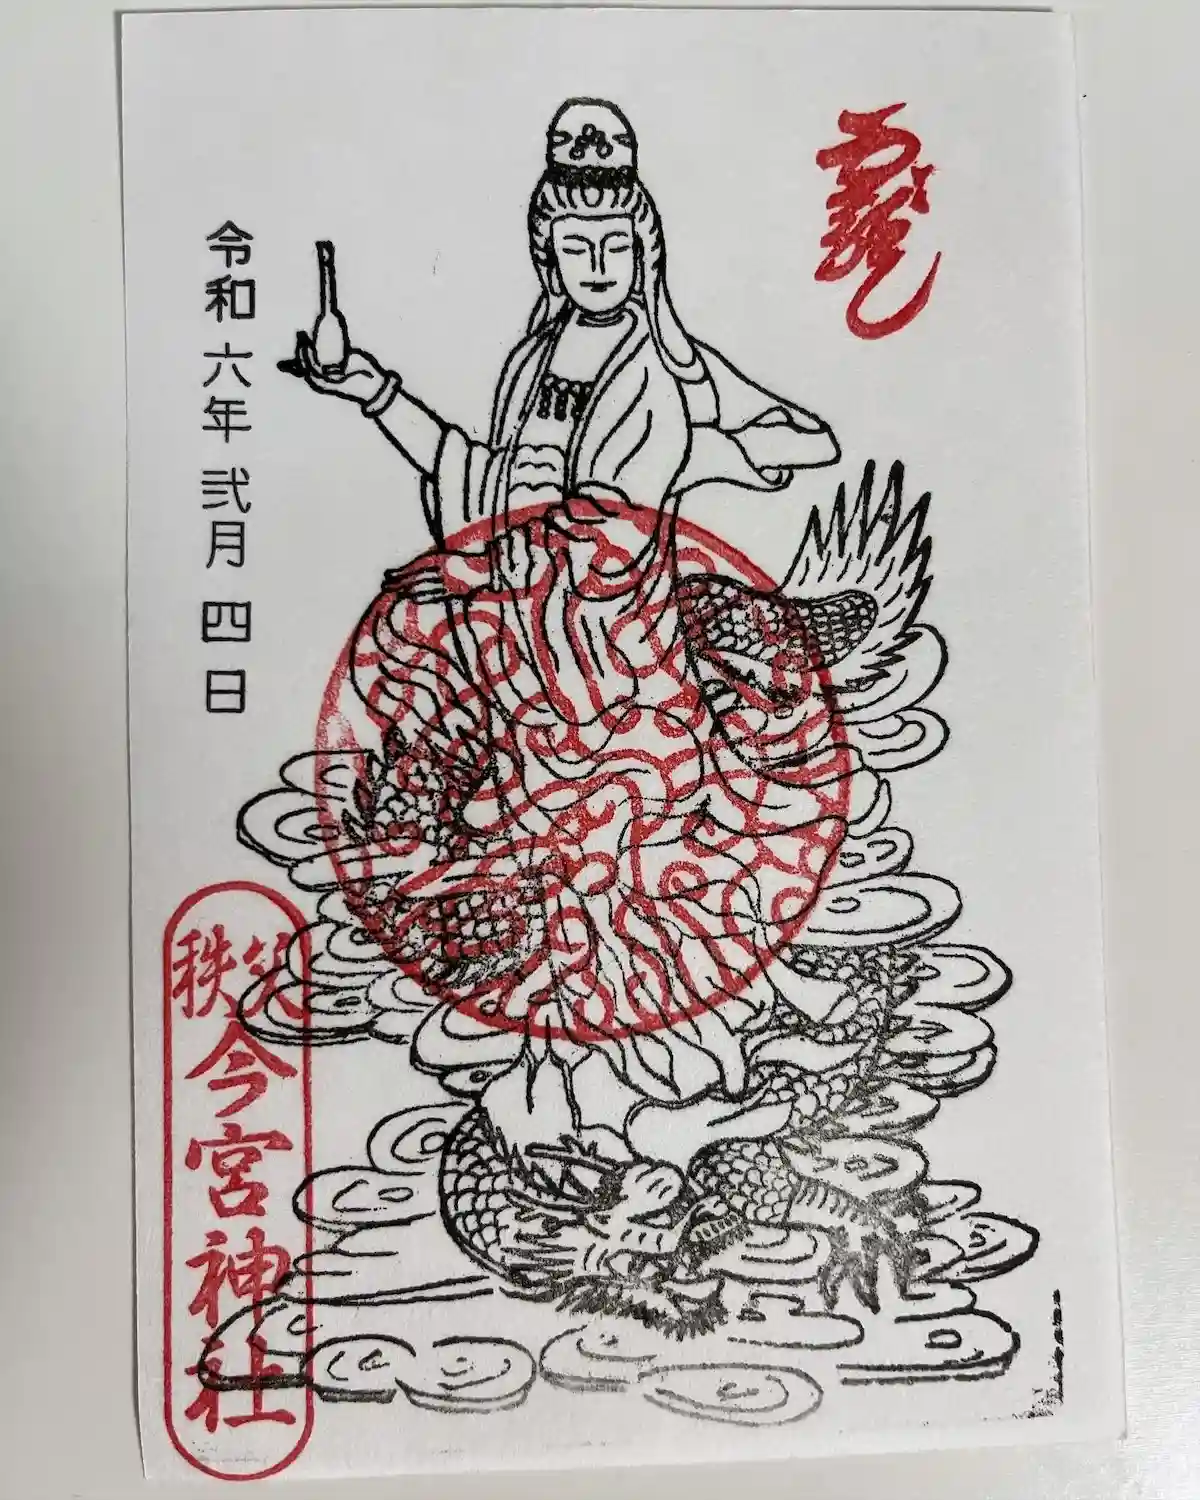 龍
令和六年弐月四日
秩父
今宮神社